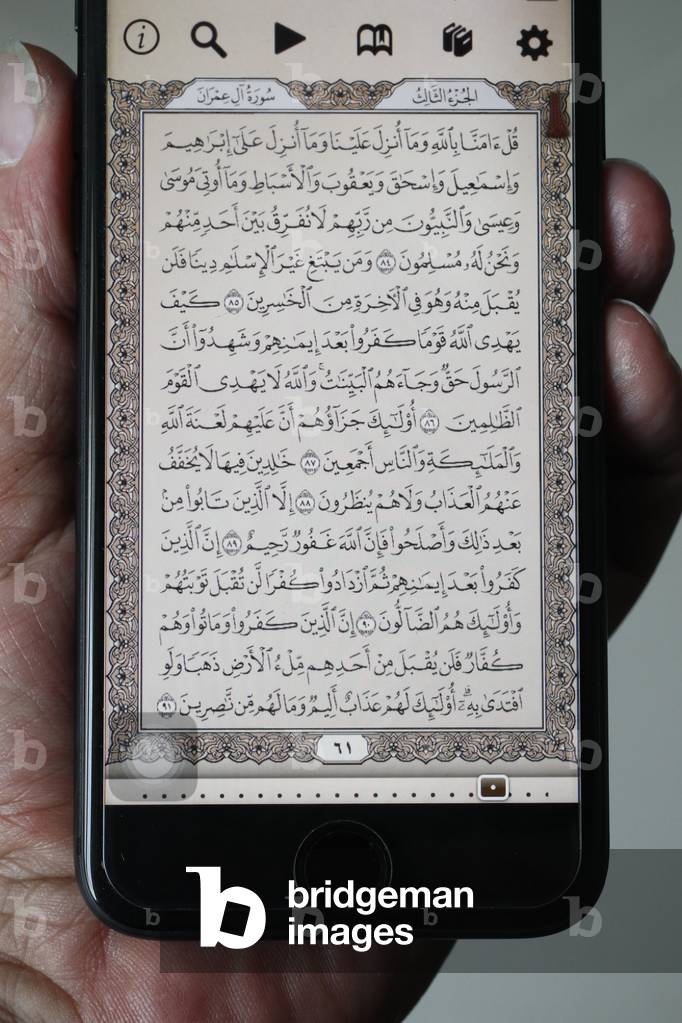 سُورَةُ آلِ عِمْرَانَ الجُزْءُ الثَّالِثُ
قُلْ ءَامَنَّا بِٱللَّهِ وَمَآ أُنزِلَ عَلَيْنَا وَمَآ أُنزِلَ عَلَىٰٓ إِبْرَٰهِيمَ
وَإِسْمَٰعِيلَ وَإِسْحَٰقَ وَيَعْقُوبَ وَٱلْأَسْبَاطِ وَمَآ أُوتِىَ مُوسَىٰ
وَعِيسَىٰ وَٱلنَّبِيُّونَ مِن رَّبِّهِمْ لَا نُفَرِّقُ بَيْنَ أَحَدٍ مِّنْهُمْ
وَنَحْنُ لَهُۥ مُسْلِمُونَ ٨٤ وَمَن يَبْتَغِ غَيْرَ ٱلْإِسْلَٰمِ دِينًا فَلَن
يُقْبَلَ مِنْهُ وَهُوَ فِى ٱلْءَاخِرَةِ مِنَ ٱلْخَٰسِرِينَ ٨٥ كَيْفَ
يَهْدِى ٱللَّهُ قَوْمًا كَفَرُوا۟ بَعْدَ إِيمَٰنِهِمْ وَشَهِدُوٓا۟ أَنَّ
ٱلرَّسُولَ حَقٌّ وَجَآءَهُمُ ٱلْبَيِّنَٰتُ ۚ وَٱللَّهُ لَا يَهْدِى ٱلْقَوْمَ
ٱلظَّٰلِمِينَ ٨٦ أُو۟لَٰٓئِكَ جَزَآؤُهُمْ أَنَّ عَلَيْهِمْ لَعْنَةَ ٱللَّهِ
وَٱلْمَلَٰٓئِكَةِ وَٱلنَّاسِ أَجْمَعِينَ ٨٧ خَٰلِدِينَ فِيهَا لَا يُخَفَّفُ
عَنْهُمُ ٱلْعَذَابُ وَلَا هُمْ يُنظَرُونَ ٨٨ إِلَّا ٱلَّذِينَ تَابُوا۟ مِنۢ
بَعْدِ ذَٰلِكَ وَأَصْلَحُوا۟ فَإِنَّ ٱللَّهَ غَفُورٌ رَّحِيمٌ ٨٩ إِنَّ ٱلَّذِينَ
كَفَرُوا۟ بَعْدَ إِيمَٰنِهِمْ ثُمَّ ٱزْدَادُوا۟ كُفْرًا لَّن تُقْبَلَ تَوْبَتُهُمْ
وَأُو۟لَٰٓئِكَ هُمُ ٱلضَّآلُّونَ ٩٠ إِنَّ ٱلَّذِينَ كَفَرُوا۟ وَمَاتُوا۟ وَهُمْ
كُفَّارٌ فَلَن يُقْبَلَ مِنْ أَحَدِهِم مِّلْءُ ٱلْأَرْضِ ذَهَبًا وَلَوِ
ٱفْتَدَىٰ بِهِۦٓ ۗ أُو۟لَٰٓئِكَ لَهُمْ عَذَابٌ أَلِيمٌ وَمَا لَهُم مِّن نَّٰصِرِينَ ٩١
٦١
bridgeman
images